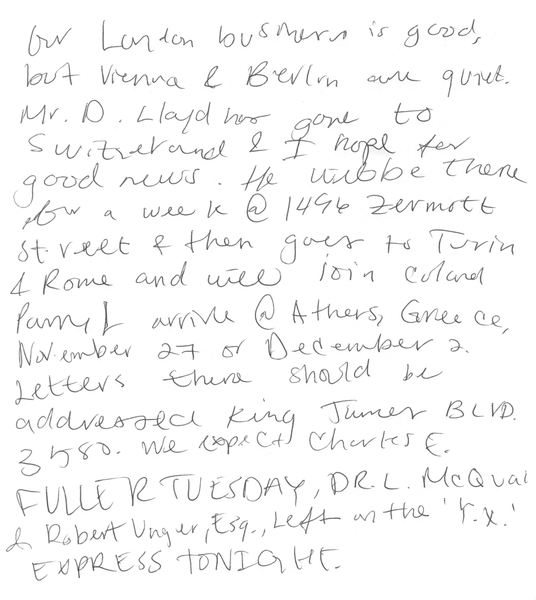 Our London business is good,
but Vienna & Berlin are quiet.
Mr. D. Lloyd has gone to
Switzerland & I hope for
good news. He will be there
for a week @ 1496 Zermott
street & then goes to Turin
& Rome and will join
Parry & arrive @ Athens, Greece,
November 27 or December 2.
Letters there should be
addressed King James BLVD.
3580. We expect Charles E.
FULLER TUESDAY, DR. L. McQuai
& Robert Unger, Esq., Left on the 'Y.X.'
EXPRESS TONIGHT.